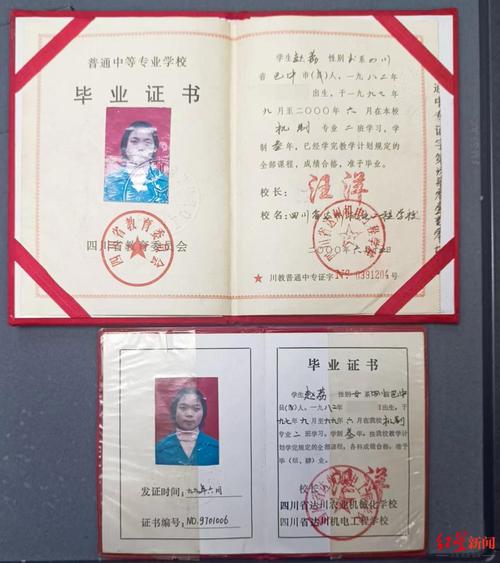 普通中等专业学校
毕业证书
四川省教育委员会
学生赵荔 性别女 系四川
省巴中市(县)人，一九八二年
出生，于一九九七年
九月至二〇〇〇年六月在本校
机制专业二班学习，学
制叁年，已经学完教学计划规定的
全部课程，成绩合格，准予毕业。
校长：汪洋
校名：四川省达川机电工程学校
二〇〇〇年六月
川教普通中专证字 №. 0391204 号
毕业证书
学生赵荔 性别女 系四川巴中
县(市)人，一九八二年 出生，于
九七年九月至 年六月在我校机制
专业二班学习，学制叁年。按我校教学计
划学完规定的全部课程，各科成绩合格，准予
毕（结、肄）业
校长：汪洋
四川省达川农业机械化学校
四川省达川机电工程学校
发证时间： 年六月
证书编号：NO.9701006
红星新闻